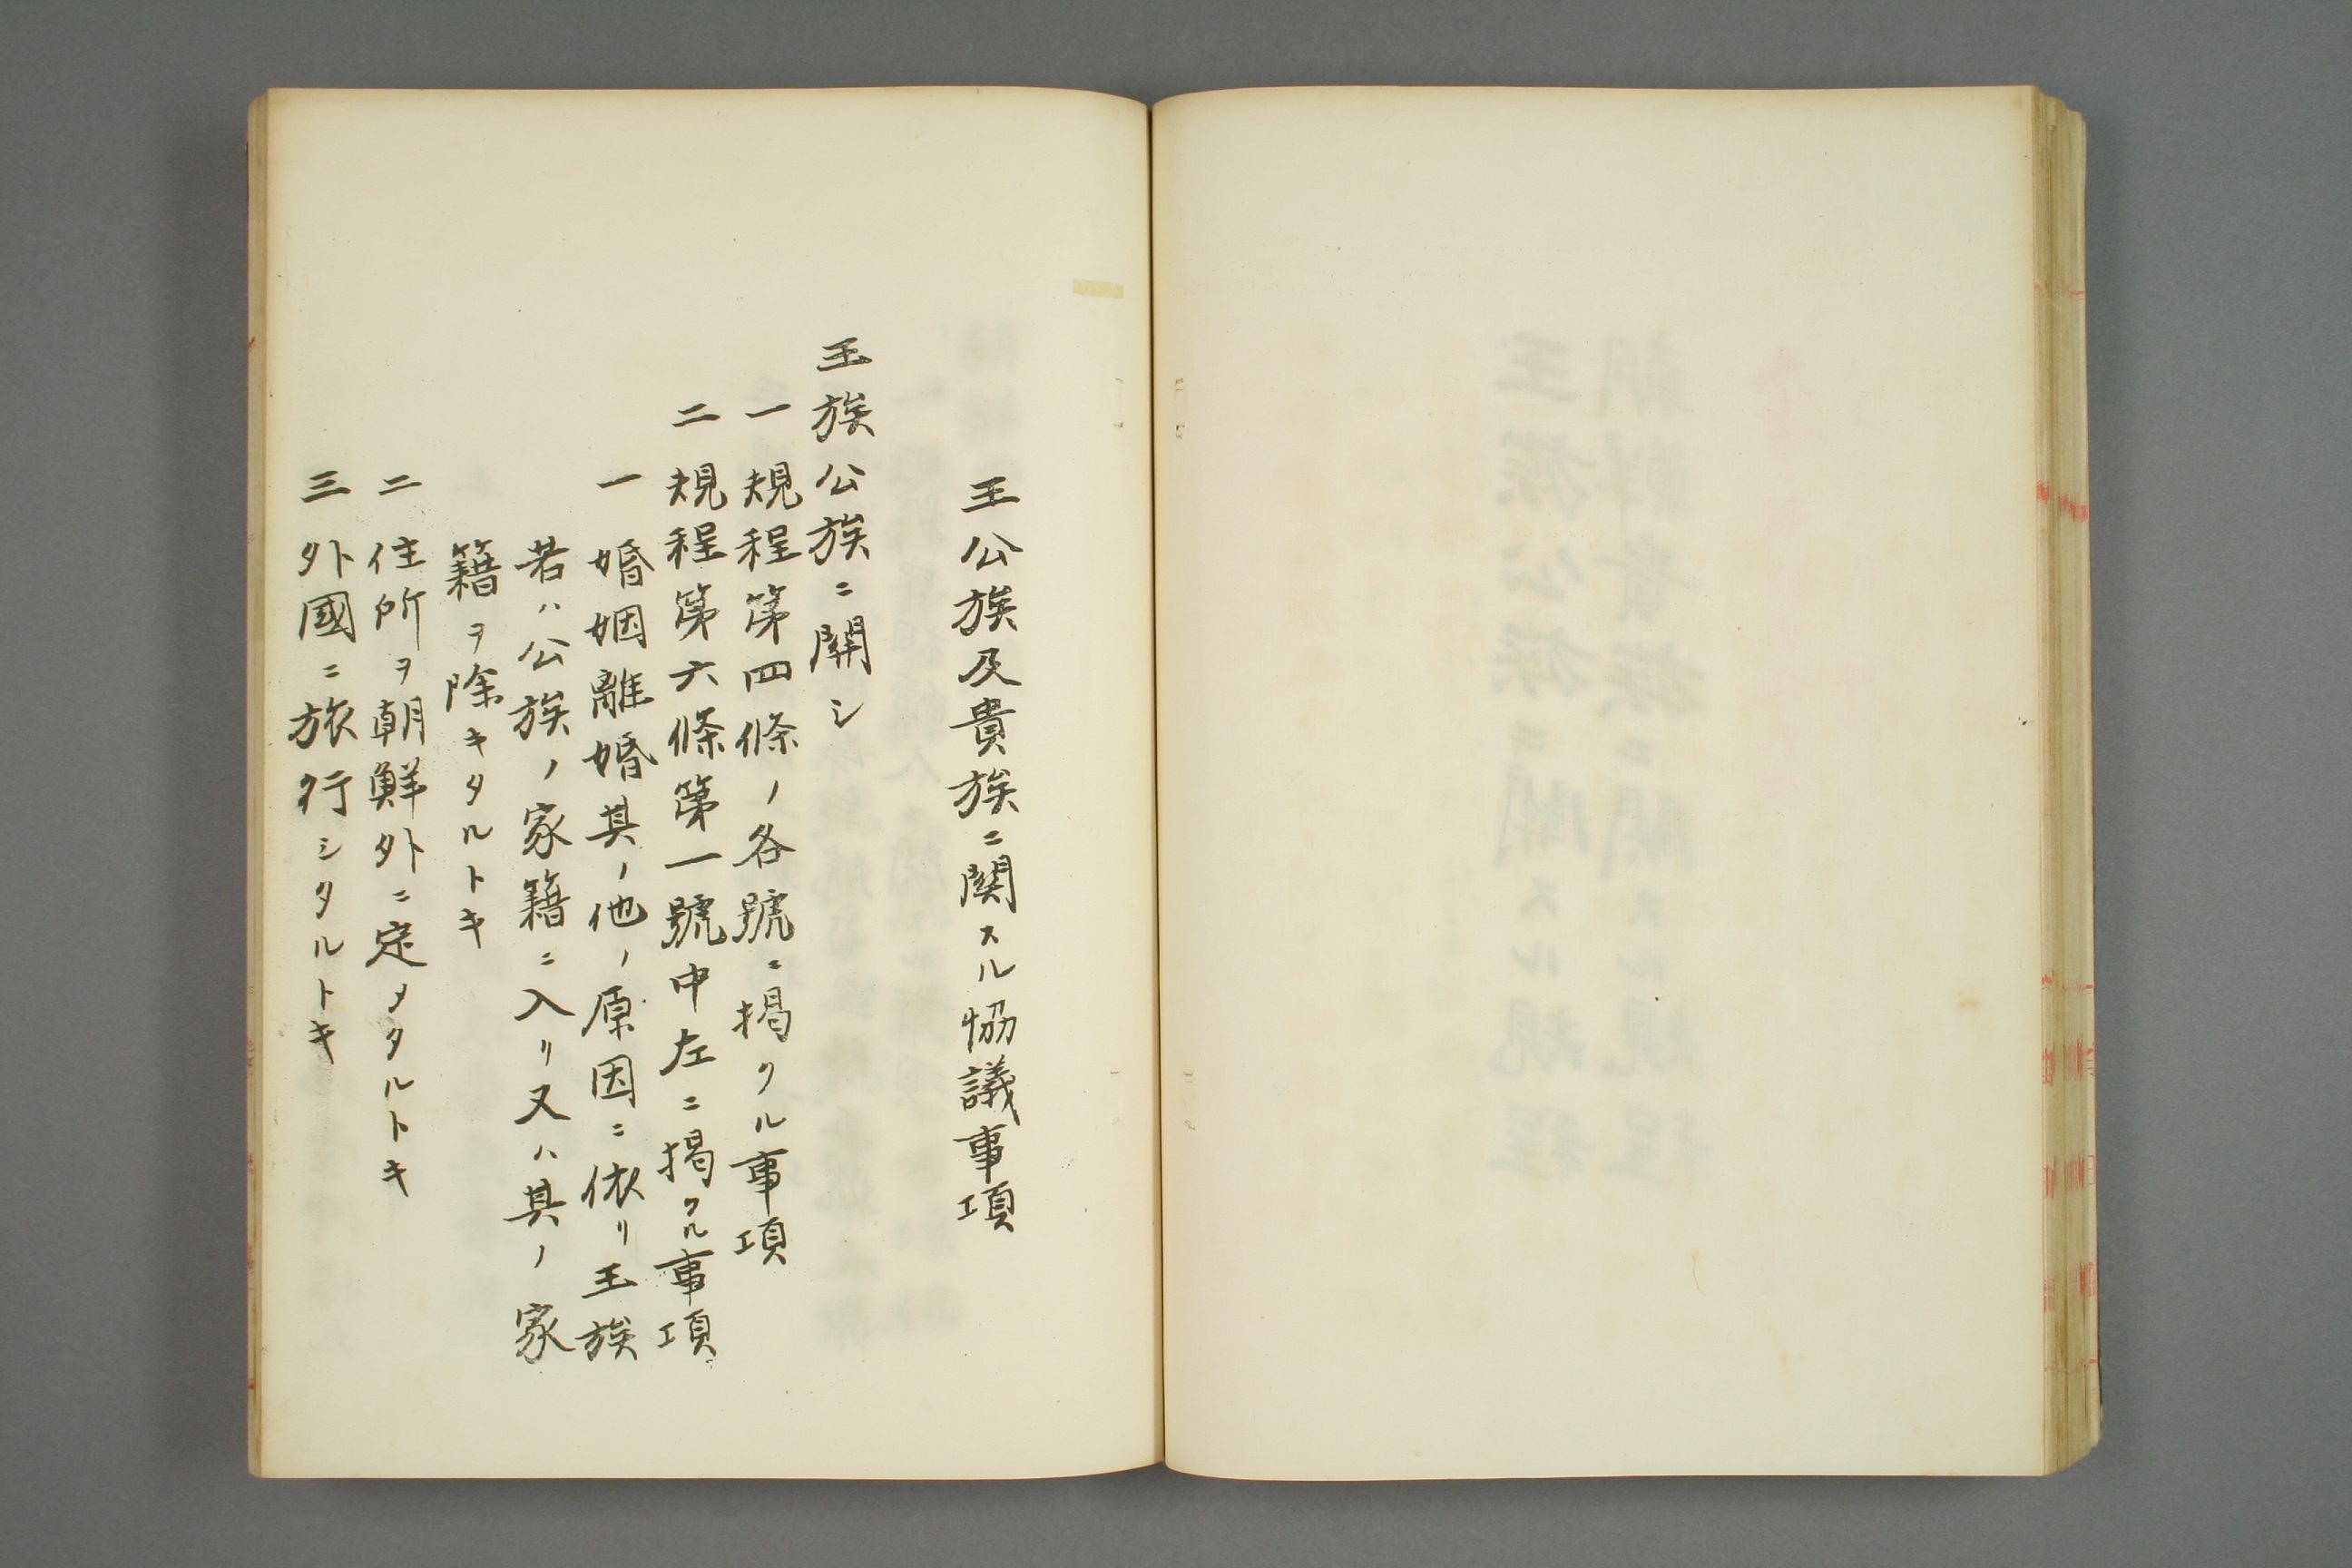 王公族及貴族ニ関スル協議事項
王族公族ニ関シ
一 規程第四條ノ各號ニ掲クル事項
二 規程第六條第一號中左ニ掲クル事項
一 婚姻離婚其ノ他ノ原因ニ依リ王族
若ハ公族ノ家籍ニ入リ又ハ其ノ家
籍ヲ除キタルトキ
二 住所ヲ朝鮮外ニ定メタルトキ
三 外國ニ旅行シタルトキ